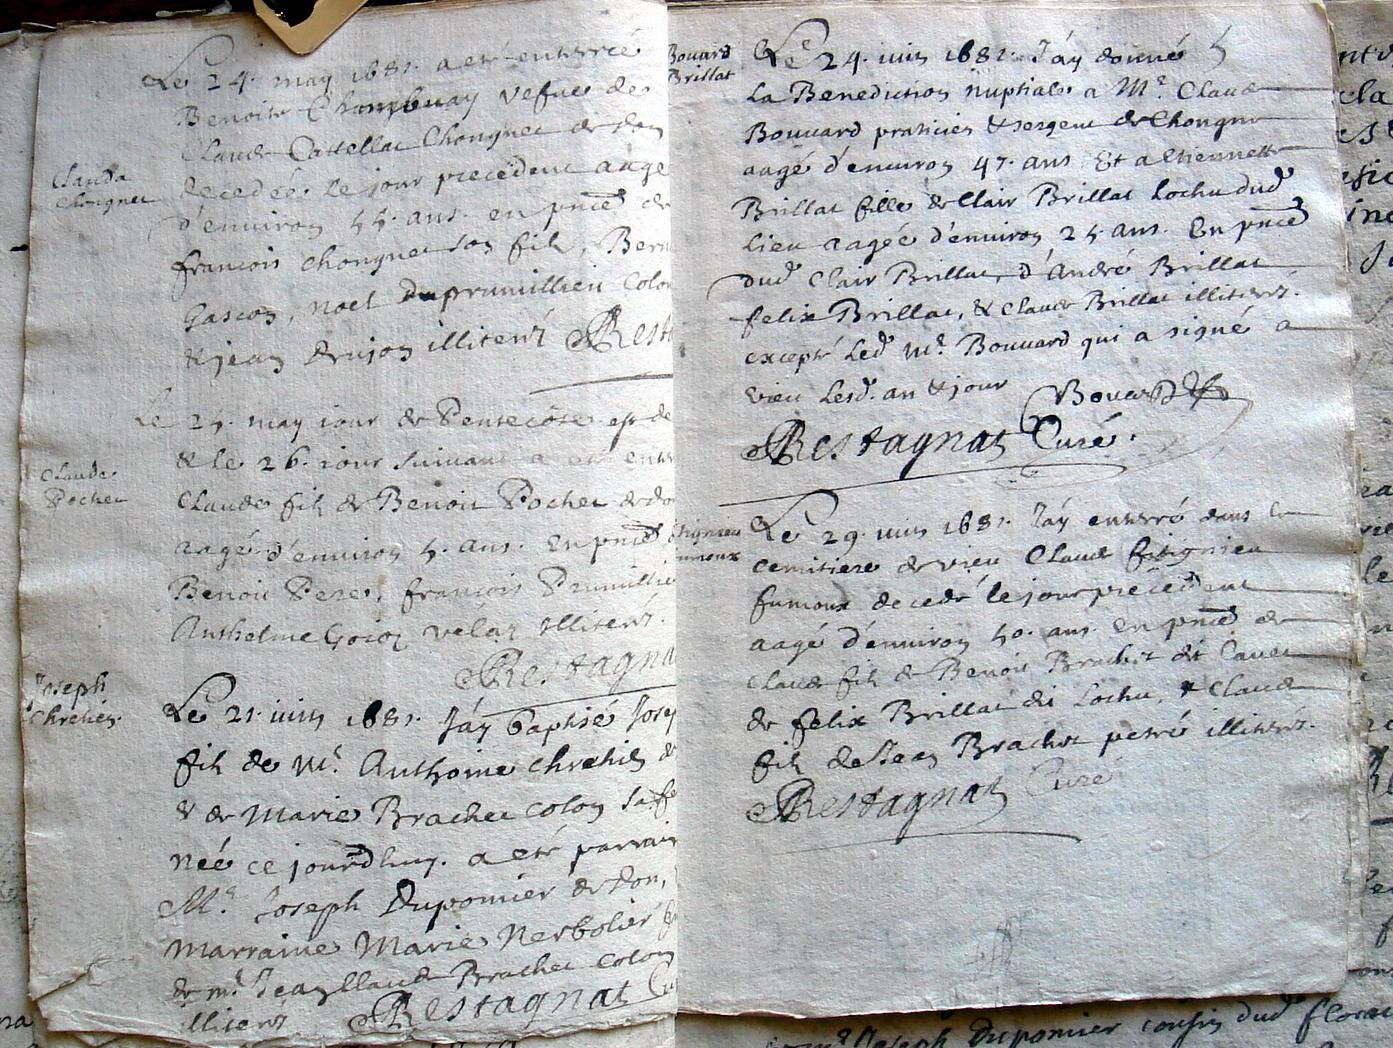 Le 24. may 1681. a eté enterré
Benoite vefue de
Claude Castellac Chongnet de don
Clauda
Chongnet
decedée le jour precedent aagé
d'environ 55. ans. en pnce de
francois chongnet son fils, Bern
Gascon, noel duprumillieu colon
& jean Drujon illiterz Resta
Le 25. may jour de Pentecoste est de
& le 26. jour suivant a eté enter
Claude
Pochet
Claude fils de Benoit Pochet de don
aagé d'environ 5. ans. En pnce
Benoit Pere, francois Prumillie
Anthelme Gojoz velaz illiterz.
Restagna
Joseph
Chretien.
Le 21. juin 1681. J'ay baptisé Josep
fils de Mr. Anthoine Chretien de
& de Marie Brachet colon sa fe
Née ce jourdhuy. a eté parrain
Mr. Joseph Duponnier de don,
Marraine Marie Nerbolier
de mr. Jean Claude Brachet colon
illiterz Restagnat Cu
Bouard
Brillat
Le 24. juin 1681. J'ay donné
La Benediction nuptiale a Mr. Claude
Bouvard praticien & sergent de Chongne
aagé d'environ 47. ans Et a Etiennette
Brillat fille de Clair Brillat Lochu dud
Lieu aagée d'environ 25 ans. En pnce
dud Clair Brillat, d'André Brillat
felix Brillat, & Claude Brillat illiterz.
excepté Led Mr. Bouvard qui a signé a
vieu Lesd. an & jour Bouard
Restagnat Curé.
fumoux
Le 29. juin 1681. J'ay enterré dans le
cemitiere de vieu Claude fitignieu
fumoux decedé le jour précédent
aagé d'environ 50. ans en pnce de
Claude fils de Benoit Brachet dit Cavet
de felix Brillat dit Lochu, & Claude
fils de Jean Brachet petré illiterz.
Restagnat Curé
Mr Joseph Duponnier cousin dud